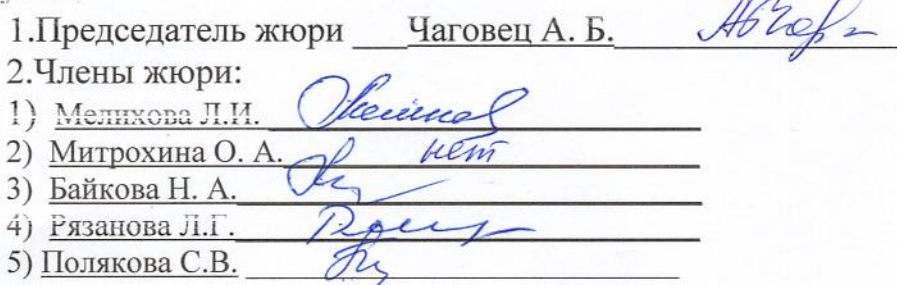 1.Председатель жюри Чаговец А. Б.
2.Члены жюри:
1) Мелихова Л.И.
2) Митрохина О. А. нет
3) Байкова Н. А.
4) Рязанова Л.Г.
5) Полякова С.В.